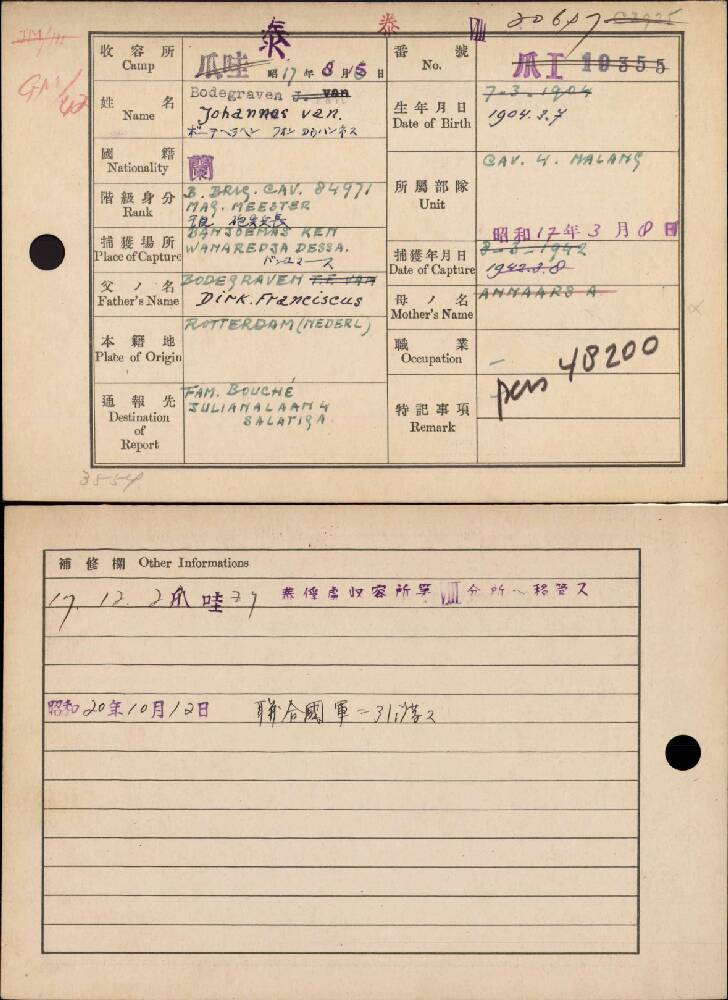 JM/III
泰
VIII 20607 C2925
GM/42
收容所
Camp
爪哇
泰
昭17年8月15日
番號
No.
爪I 10355
姓名
Name
Bodegraven J. van
Johannes van.
生年月日
Date of Birth
7-3-1904
1904.3.7
國籍
Nationality
蘭
階級身分
Rank
B. BRIG. CAV. 84971
MAG. MEESTER
所屬部隊
Unit
CAV. 4. MALANG
捕獲場所
Place of Capture
BANJOEMAS KEM
WANAREDJA DESSA.
バンユマース
捕獲年月日
Date of Capture
昭和17年3月8日
8-3-1942
1942.3.8
父ノ名
Father's Name
BODEGRAVEN F.F. VAN
Dirk. Franciscus
母ノ名
Mother's Name
ANNAARS A
本籍地
Place of Origin
ROTTERDAM (NEDERL)
職業
Occupation
-
通報先
Destination
of
Report
FAM. BOUCHÉ
JULIANALAAN 4
SALATIGA
特記事項
Remark
pen 48200
3554
補修欄 Other Informations
17. 12. 2 爪哇ヨリ 泰俘虜収容所第VIII分所へ移管ス
昭和20年10月12日 聯合國軍ニ引渡ス